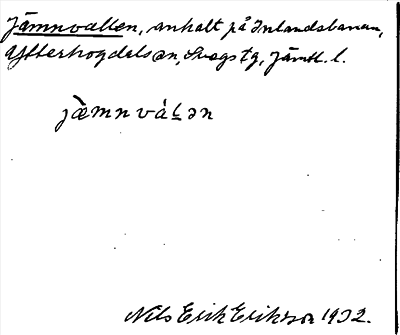 Jämnvallen, anhalt på Inlandsbanan,
Ytterhogdals sn, Svegs tg, Jämtl. l.
jæ̀mnváḷən
Nils Erik Erikson 1932.